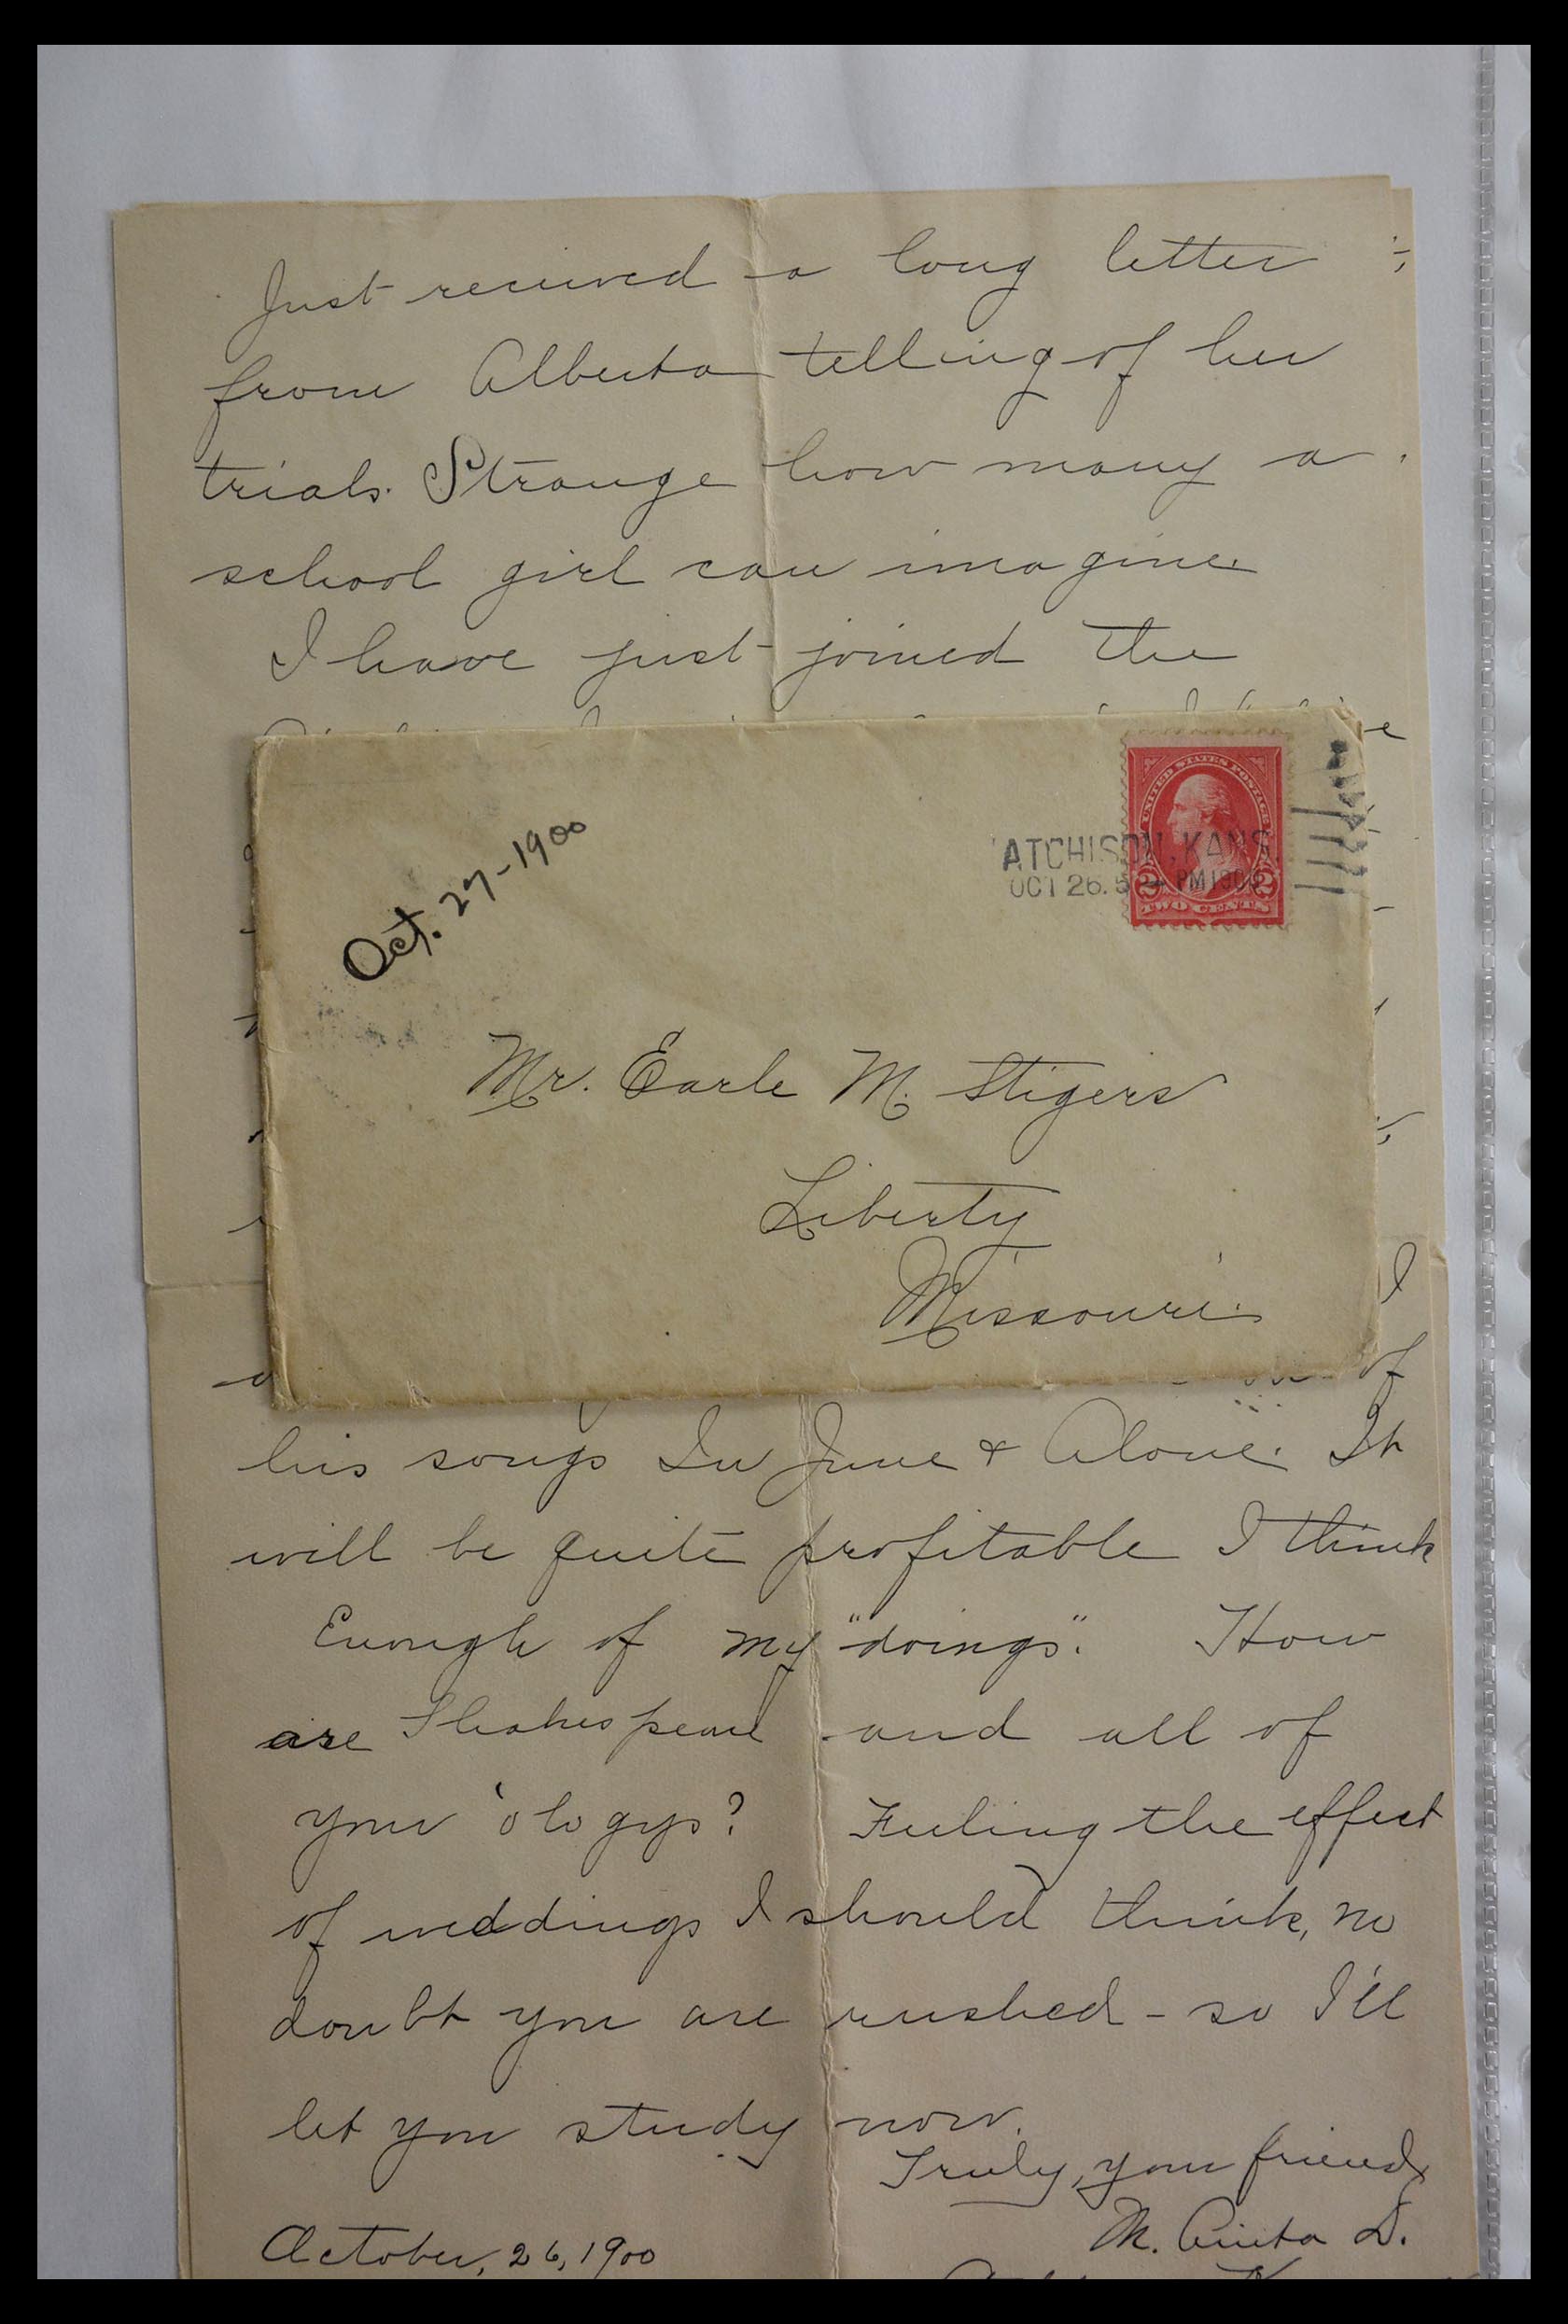 Just received a long letter
from Alberta telling of her
trials. Strange how many a
school girl can imagine.
I have just joined the
Oct. 27-1900
UNITED STATES POSTAGE
ATCHISON, KANS.
OCT 26. 5 PM 1900
2 2
TWO CENTS
Mr. Earle M. Stigers
Liberty
Missouri.
I
of
his songs In June & Alone. It
will be quite profitable I think
Enough of my "doings". How
are Shakespeare and all of
your 'ologys? Feeling the effect
of weddings I should think, no
doubt you are rushed - so I'll
let you study now.
Truly, your friend,
M. Anita D.
October, 26, 1900